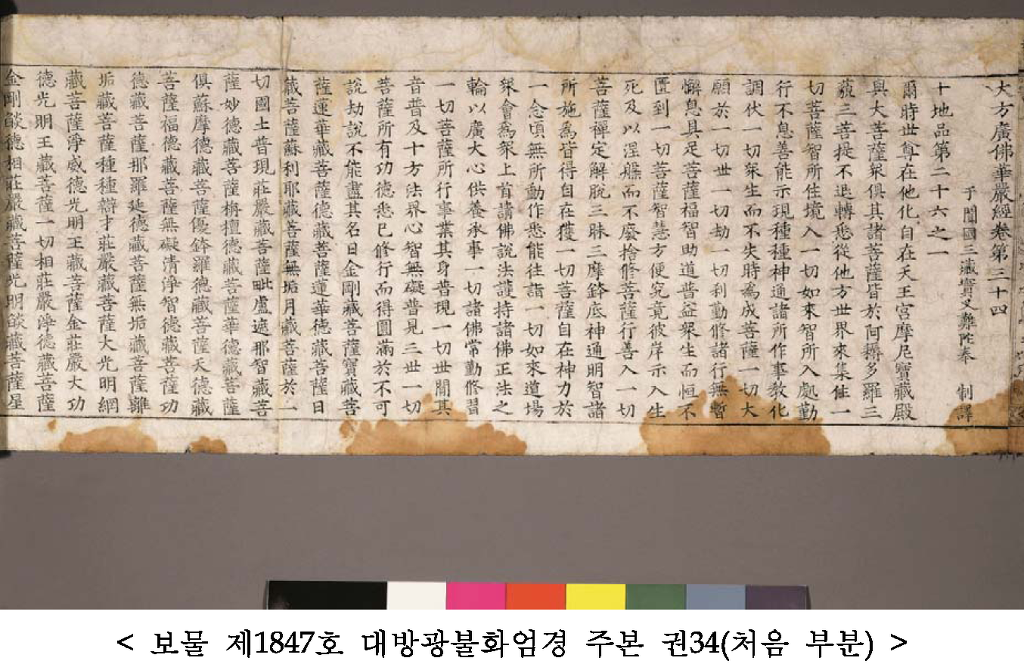 大方廣佛華嚴經卷第三十四
于闐國三藏實叉難陀奉 制譯
十地品第二十六之一
爾時世尊在他化自在天王宮摩尼寶藏殿
與大菩薩衆俱其諸菩薩皆於阿耨多羅三
藐三菩提不退轉悉從他方世界來集住一
切菩薩智所住境入一切如來智所入處勤
行不息善能示現種種神通諸所作事教化
調伏一切衆生而不失時爲成菩薩一切大
願於一切世一切劫一切刹勤修諸行無暫
懈息具足菩薩福智助道普益衆生而恒不
匱到一切菩薩智慧方便究竟彼岸示入生
死及以涅槃而不廢捨修菩薩行善入一切
菩薩禪定解脫三昧三摩鉢底神通明智諸
所施爲皆得自在獲一切菩薩自在神力於
一念頃無所動作悉能往詣一切如來道場
衆會爲衆上首請佛說法護持諸佛正法之
輪以廣大心供養承事一切諸佛常勤修習
一切菩薩所行事業其身普現一切世間其
音普及十方法界心智無礙普見三世一切
菩薩所有功德悉已修行而得圓滿於不可
說劫說不能盡其名曰金剛藏菩薩寶藏菩
薩蓮華藏菩薩德藏菩薩蓮華德藏菩薩日
藏菩薩蘇利耶藏菩薩無垢月藏菩薩於一
切國土普現莊嚴藏菩薩毗盧遮那智藏菩
薩妙德藏菩薩栴檀德藏菩薩華德藏菩薩
俱蘇摩德藏菩薩優鉢羅德藏菩薩天德藏
菩薩福德藏菩薩無礙清淨智德藏菩薩功
德藏菩薩那羅延德藏菩薩無垢藏菩薩離
垢藏菩薩種種辯才莊嚴藏菩薩大光明網
藏菩薩淨威德光明王藏菩薩金莊嚴大功
德光明王藏菩薩一切相莊嚴淨德藏菩薩
金剛焰德相莊嚴藏菩薩光明焰藏菩薩星
< 보물 제1847호 대방광불화엄경 주본 권34(처음 부분) >